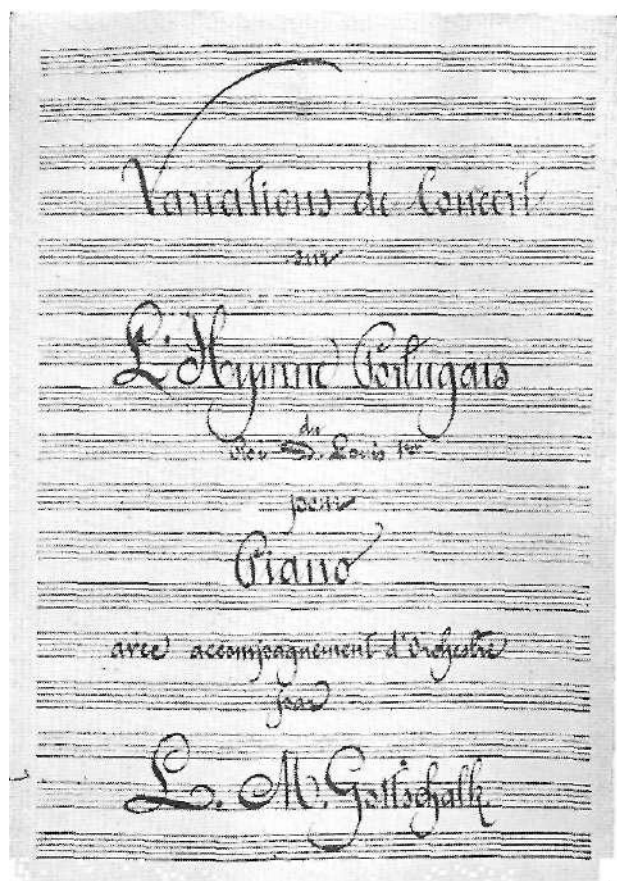 Variations de Concert
sur
L'Hymne Portugais
du
Roi D. Louis 1er
pour
Piano
avec accompagnement d'Orchestre
par
L. M. Gottschalk